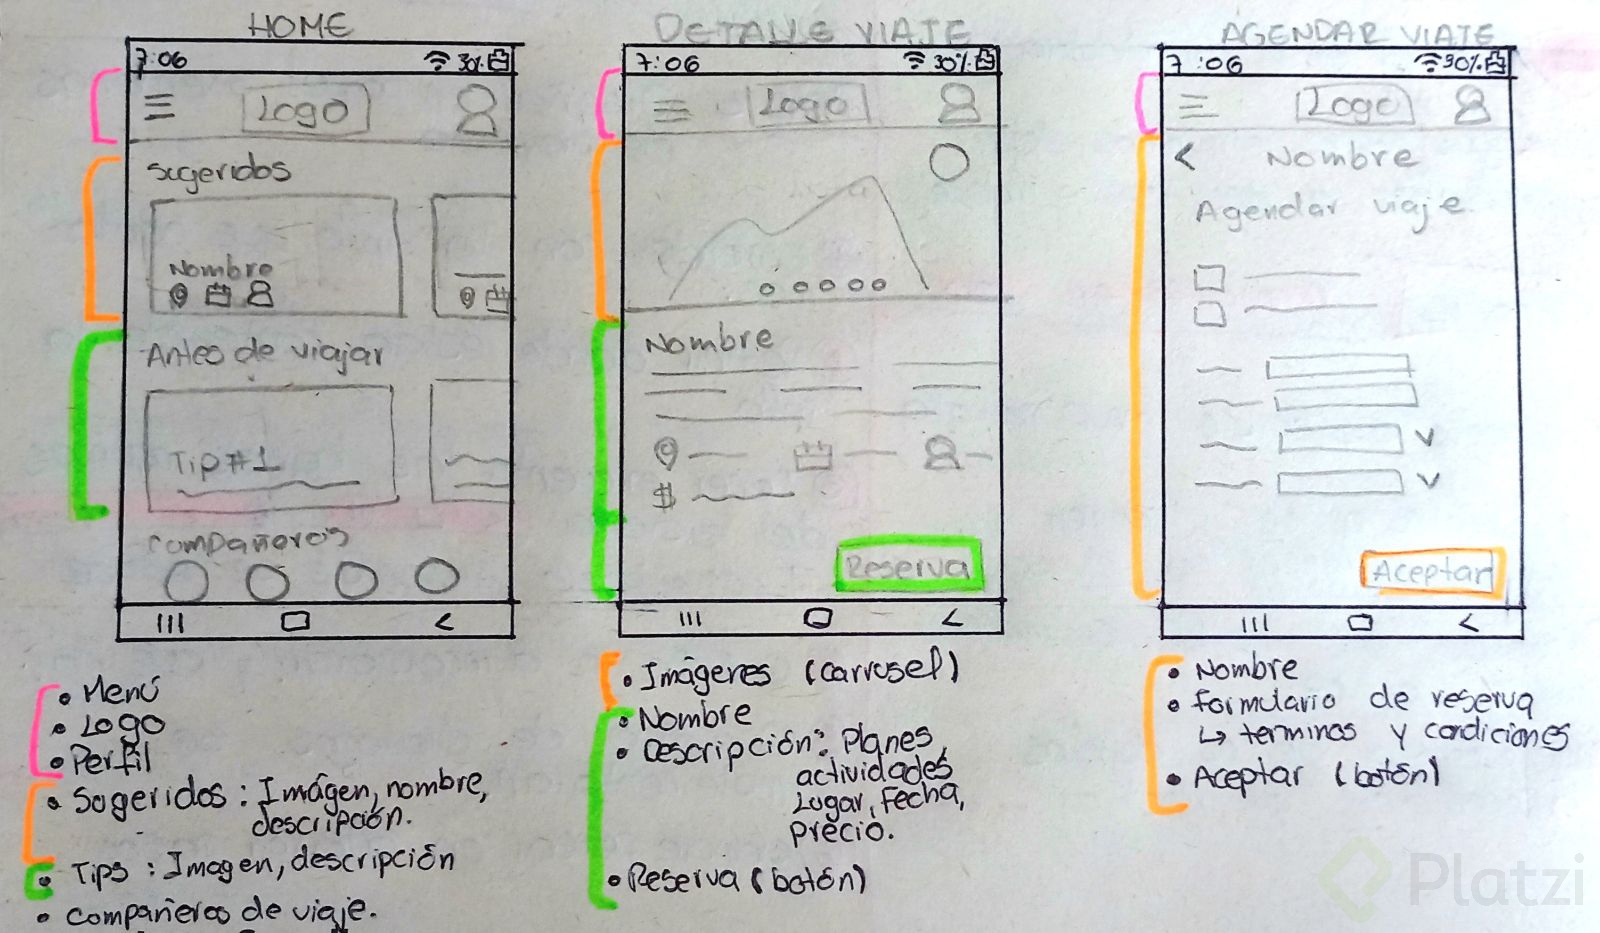 HOME
7:06 30%
Logo
Sugeridos
Nombre
Antes de viajar
Tip #1
Compañeros
• Menú
• Logo
• Perfil
• Sugeridos : Imágen, nombre,
descripción.
• Tips : Imagen, descripción
• Compañeros de viaje.
DETALLE VIAJE
7:06 30%
Logo
Nombre
$
Reserva
• Imágenes (carrusel)
• Nombre
• Descripción: Planes,
actividades
Lugar, Fecha,
precio.
• Reserva (botón)
AGENDAR VIAJE
7:06 30%
Logo
< Nombre
Agendar viaje
Aceptar
• Nombre
• Formulario de reserva
↳ terminos y condiciones
• Aceptar (botón)
Platzi